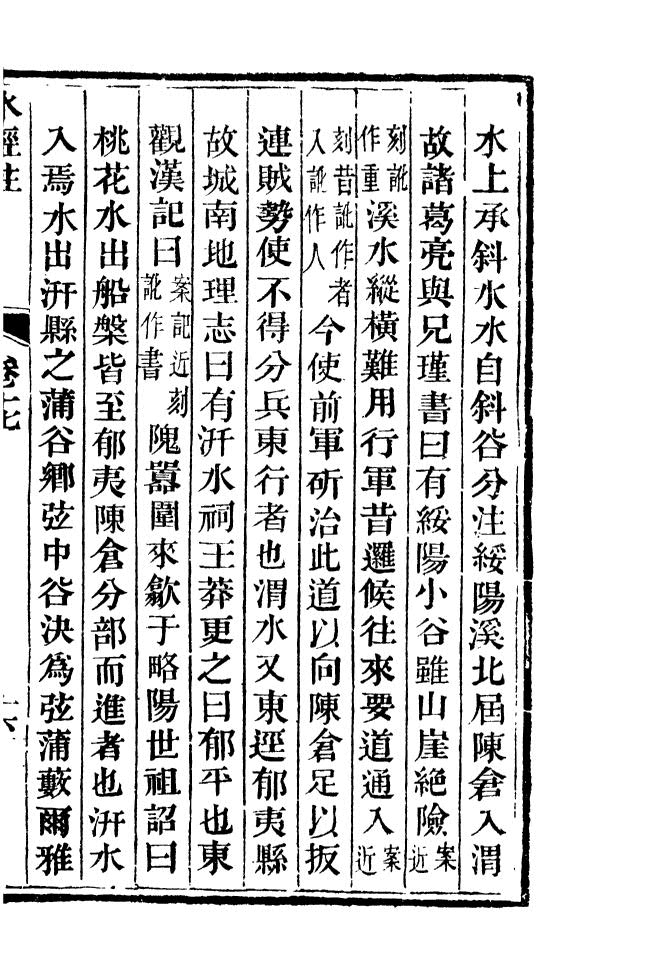 水上承斜水水自斜谷分注綏陽溪北屆陳倉入渭
故諸葛亮與兄瑾書曰有綏陽小谷雖山崖絶險案近
刻訛作重溪水縱橫難用行軍昔邏候往來要道通入案近
刻昔訛作者入訛作人今使前軍斫治此道以向陳倉足以扳
連賊勢使不得分兵東行者也渭水又東逕郁夷縣
故城南地理志曰有汧水祠王莽更之曰郁平也東
觀漢記曰案記近刻訛作書隗囂圍來歙于略陽世祖詔曰
桃花水出船槃皆至郁夷陳倉分部而進者也汧水
入焉水出汧縣之蒲谷鄉弦中谷決爲弦蒲藪爾雅
水經注 卷十七